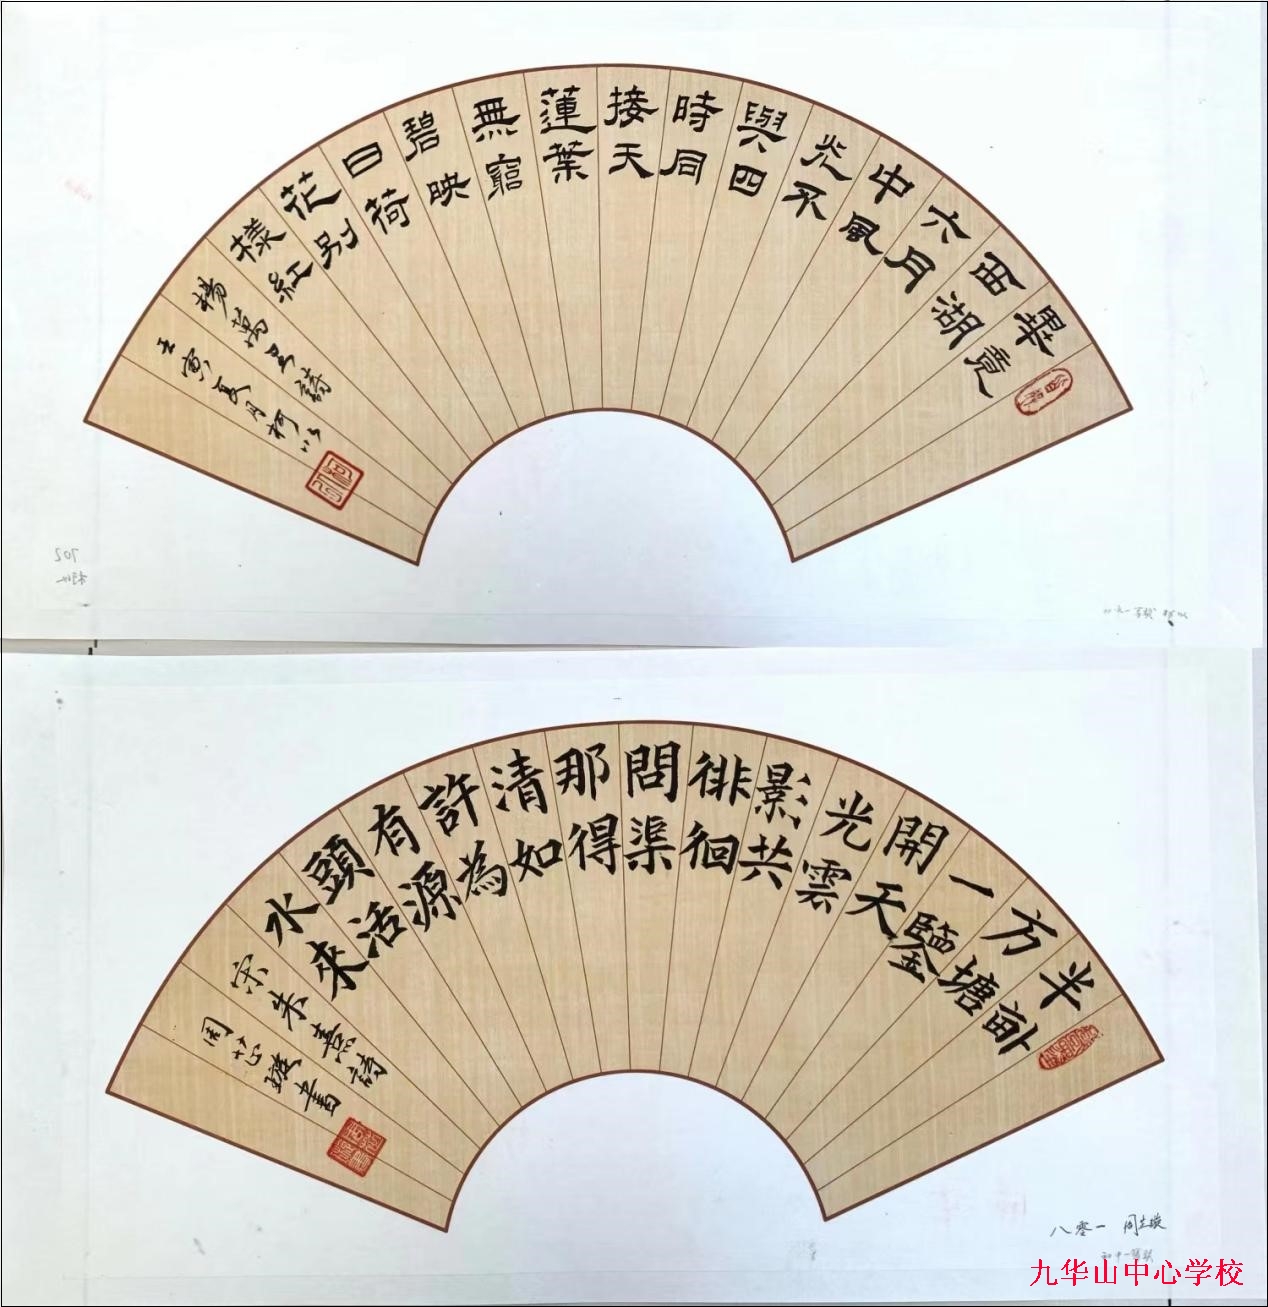 畢竟
西湖
六月
中風
光不
與四
時同
接天
蓮葉
無窮
碧映
日荷
花別
樣紅
楊萬里詩
壬寅夏月柯以
半畝
方塘
一鑒
開天
光雲
影共
徘徊
問渠
那得
清如
許為
有源
頭活
水來
宋朱熹詩
周璇書
八零一
九华山中心学校